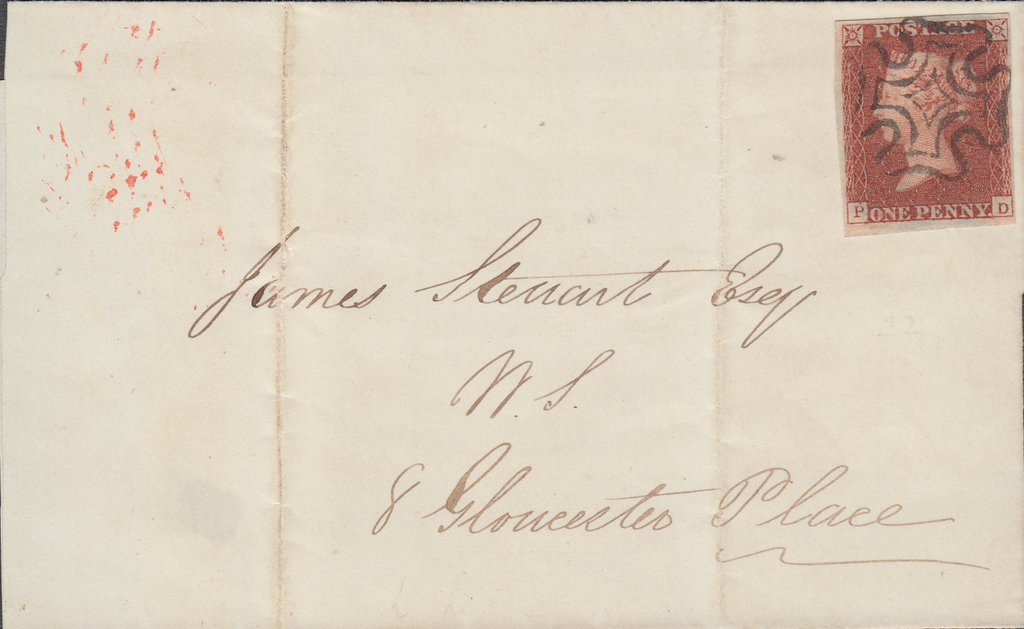 POSTAGE
P ONE PENNY D
James Steuart Esq
W.S.
8 Gloucester Place
22